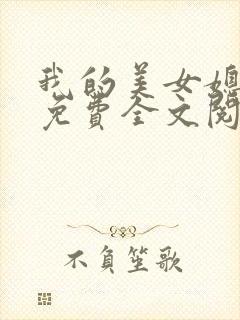 我的美女媳
免費全文閱
不負笙歌